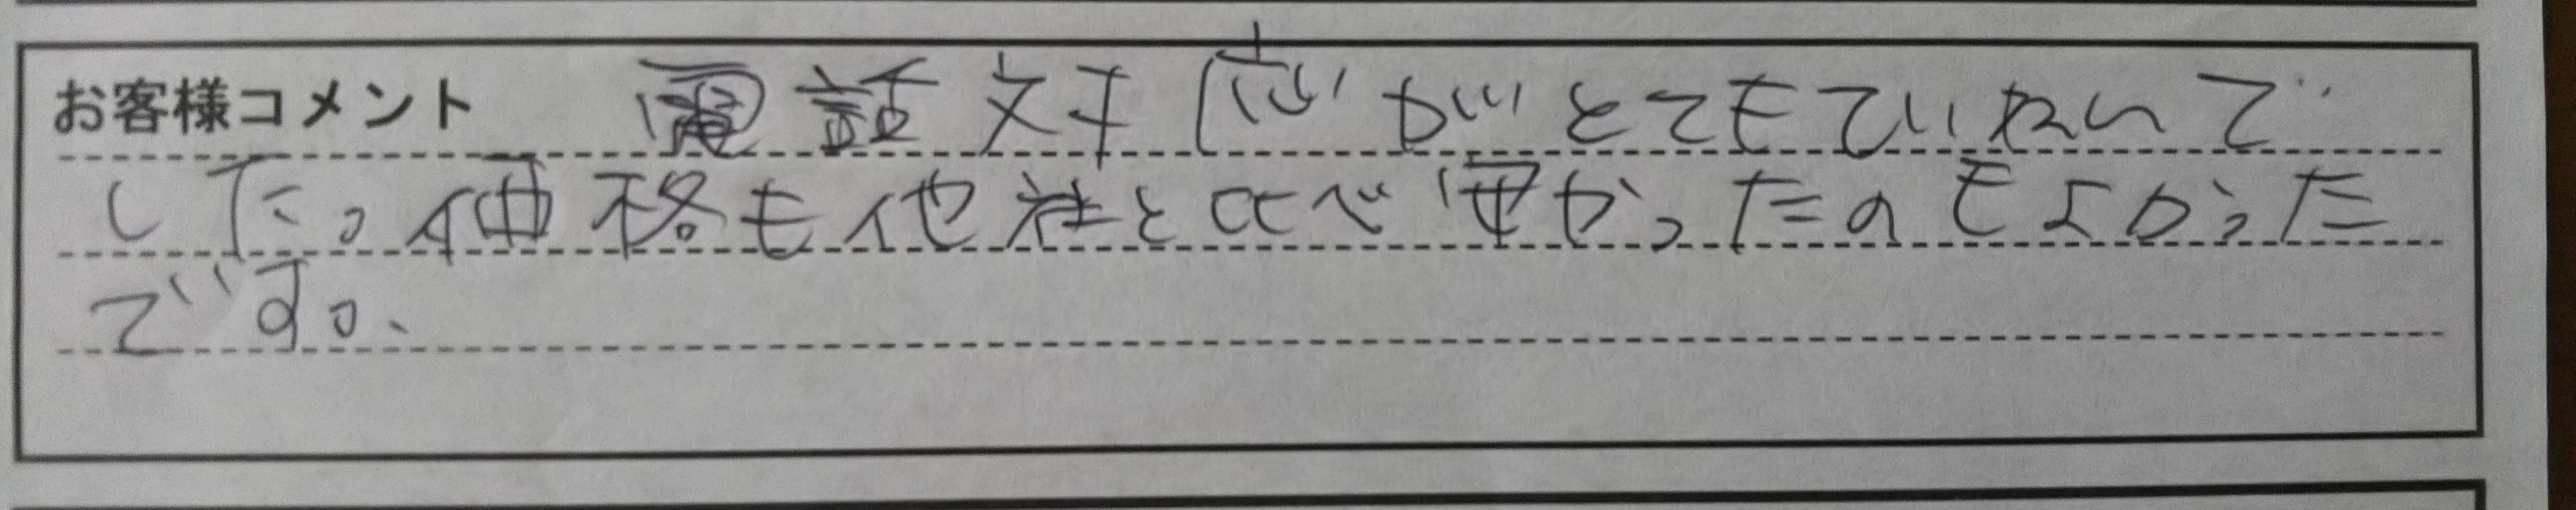 お客様コメント 電話対応がとてもていねいで
した。価格も他社と比べ安かったのもよかった
です。